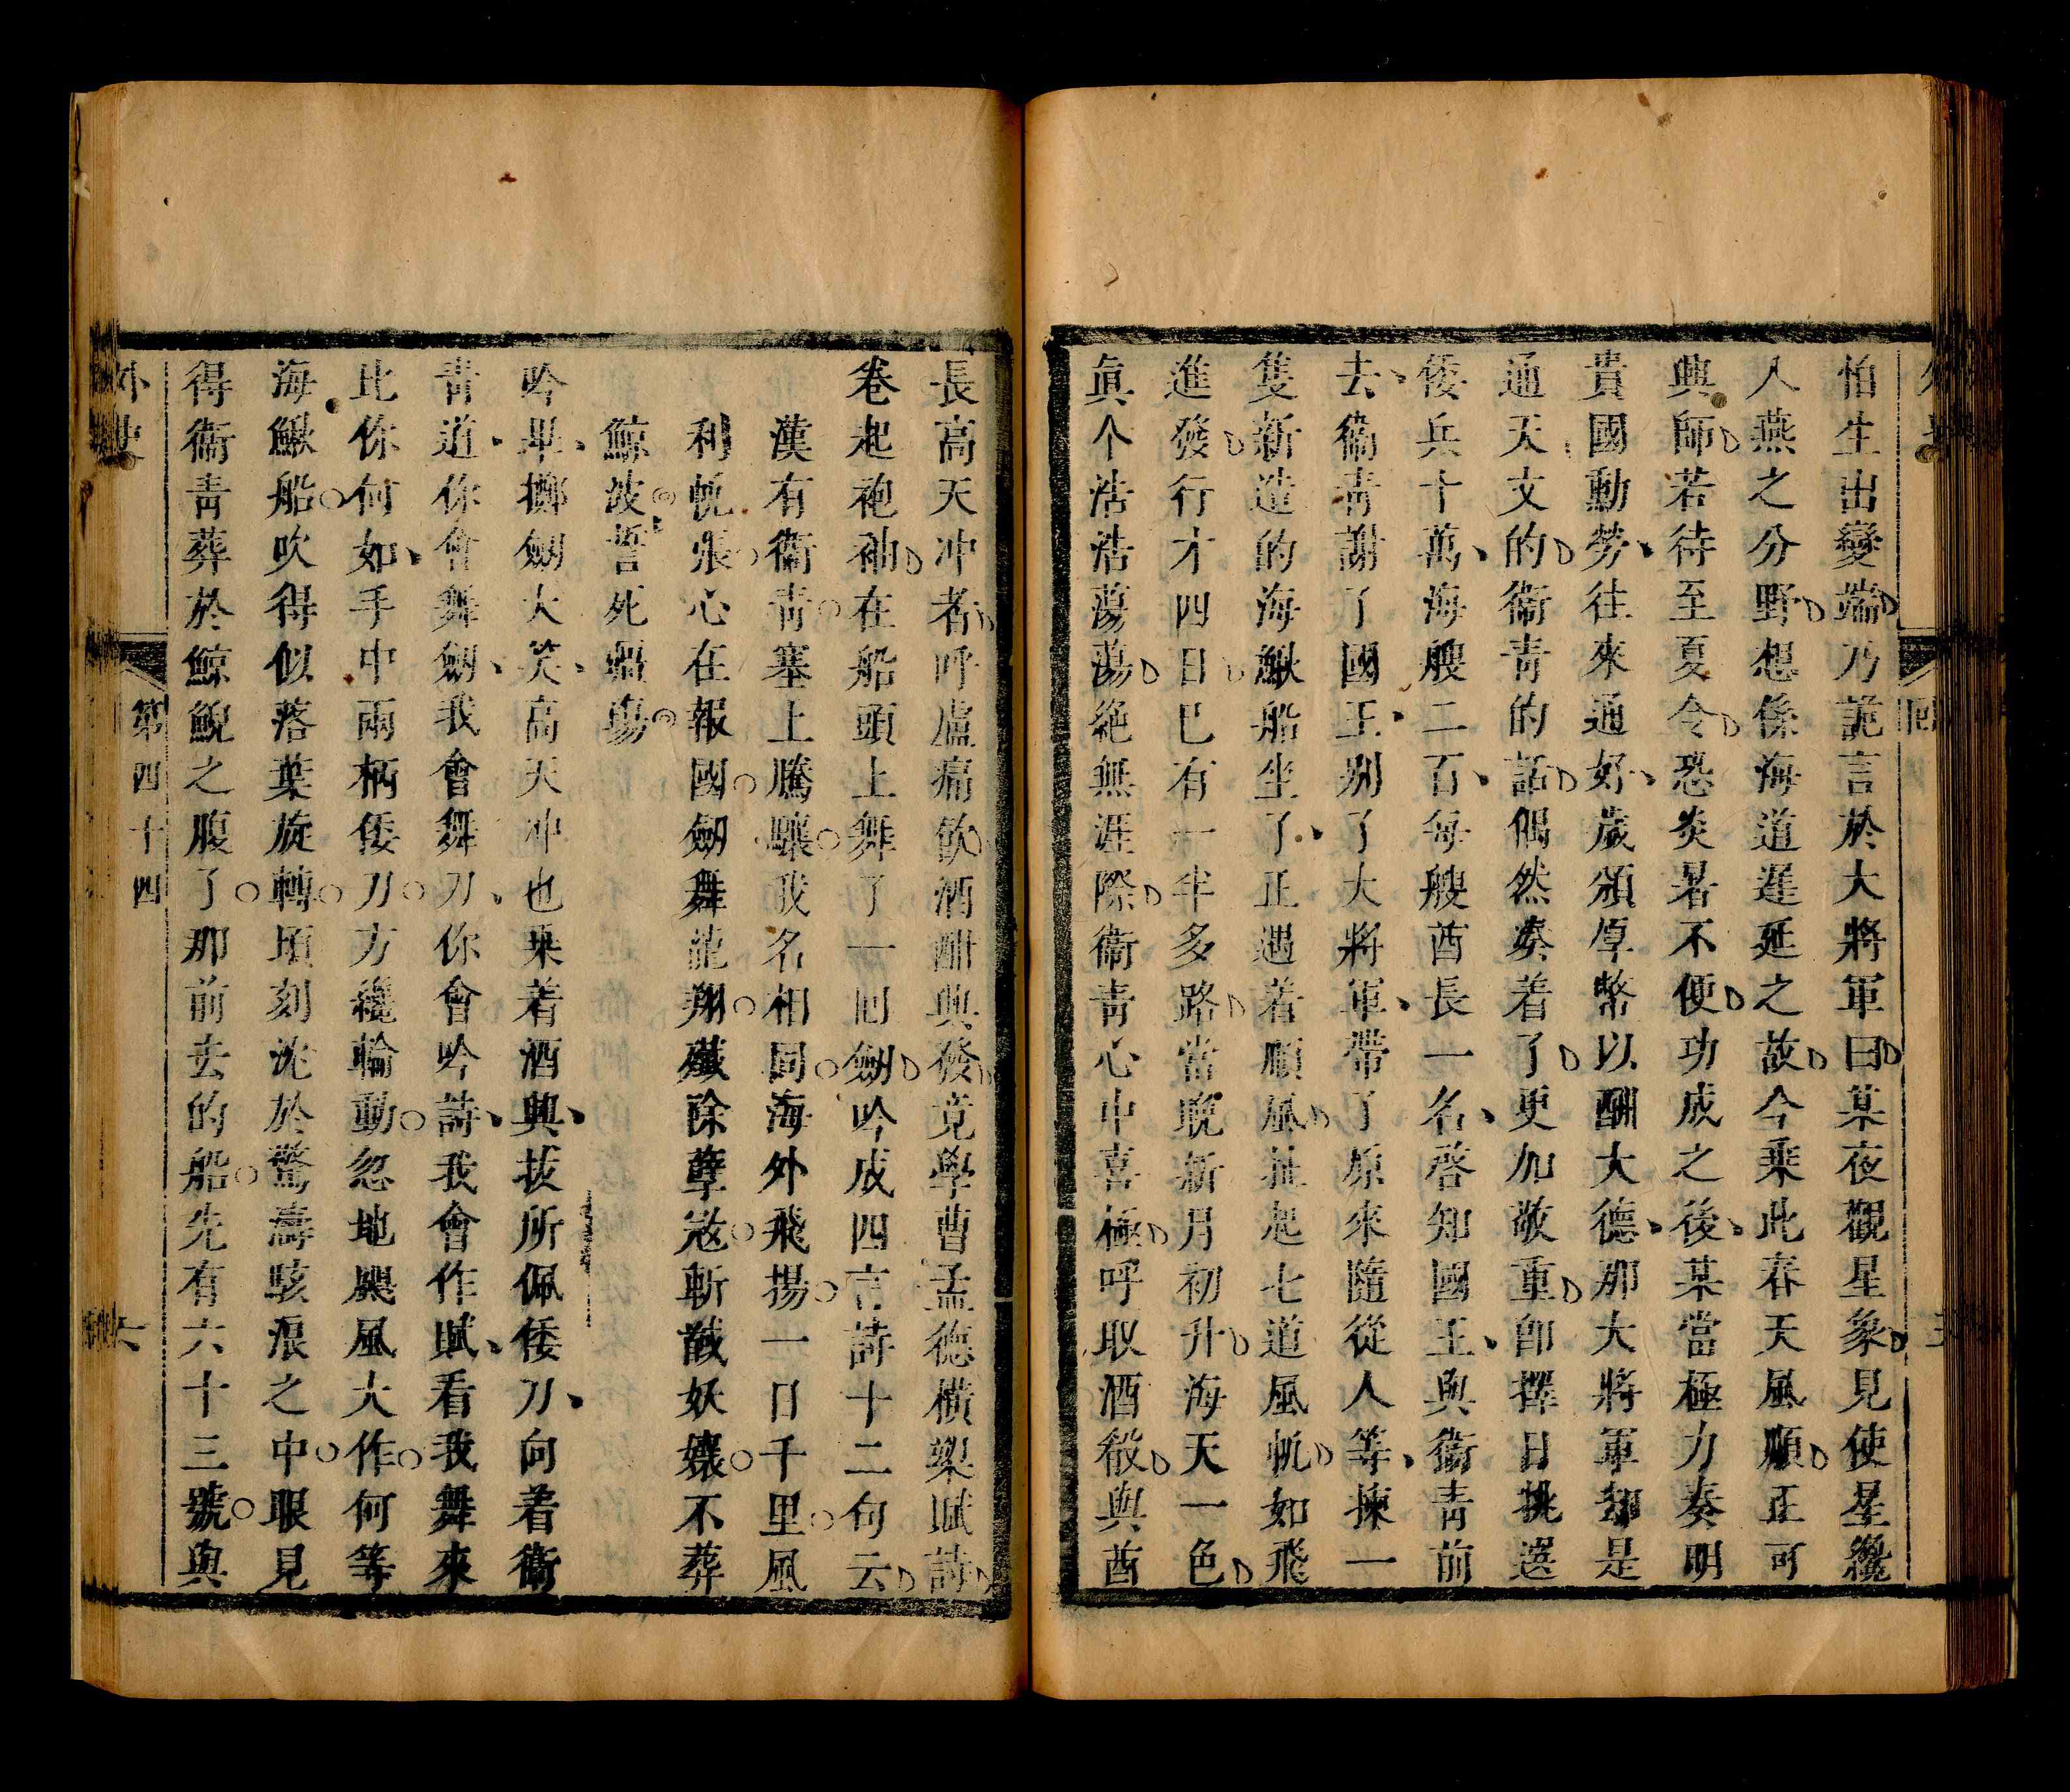 怕生出變端乃詭言於大將軍曰某夜觀星象見使星纔
人燕之分野想係海道遲延之故今乘此春天風順正可
興師若待至夏令恐炎暑不便功成之後某當極力奏明
貴國動勞往來通好歲頒厚幣以酬大德那大將軍却是
通天文的衞青的話偶然凑着了更加敬重卽擇日挑選
倭兵十萬海艘二百每艘酋長一名啓知國王與衞青前
去衞青謝了國王别了大將軍帶了原來隨從人等揀一
隻新造的海鰍船坐了正遇着順風扯起七道風帆如飛
進發行才四日已有一半多路當晚新月初升海天一色
眞个浩浩蕩蕩絶無涯際衞青心中喜極呼取酒殽與酋
長高天冲者呼盧痛飮酒酣興發竟學曹孟德橫槊賦詩
卷起袍袖在船頭上舞了一回劒吟成四言詩十二句云
漢有衞青塞上騰驤我名相同海外飛揚一日千里風
利帆張心在報國劒舞龍翔殲除孽寇斬馘妖孃不葬
鯨波誓死疆場
吟畢擲劒大笑高天冲也乘着酒興拔所佩倭刀向着衞
青道你會舞劒我會舞刀你會吟詩我會作賦看我舞來
比你何如手中兩柄倭刀方纔輪動忽地颶風大作何等
海鰍船吹得似落葉旋轉頃刻沈於驚濤駭浪之中眼見
得衞青葬於鯨鯢之腹了那前去的船先有六十三號與
外史
第四十四
六